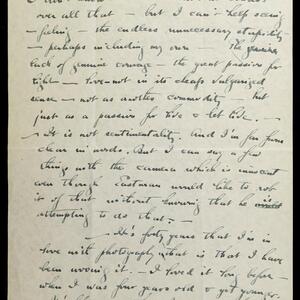 over all that — but I can't help seeing
feeling — the endless unnecessary stupidity
— perhaps including my own — The
lack of genuine courage — the great passion for
light — love — not in its cheap vulgarized
sense — not as another commodity — but
just as a passion for live & let live. —
— It is not sentimentality. And I'm far from
clear in words. But I can say a few
things with the camera which is innocent
even though Eastman would like to rob
it of that without knowing that he is
attempting to do that. —
— It's forty years that I'm in
love with photography, what is that I have
been worrying it. — I loved it long before —
when I was four years old & yet younger.